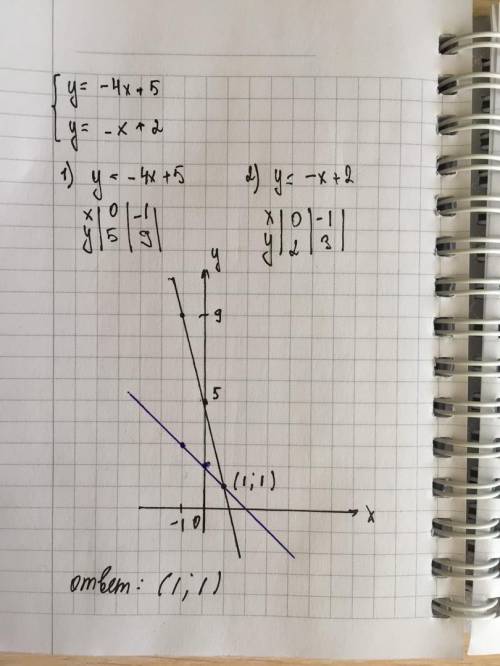 y = -4x+5
y = -x+2
1) y = -4x+5 2) y = -x+2
x | 0 | -1 | x | 0 | -1 |
y | 5 | 9 | y | 2 | 3 |
y
9
5
(1;1)
-1 0 x
ответ: (1;1)